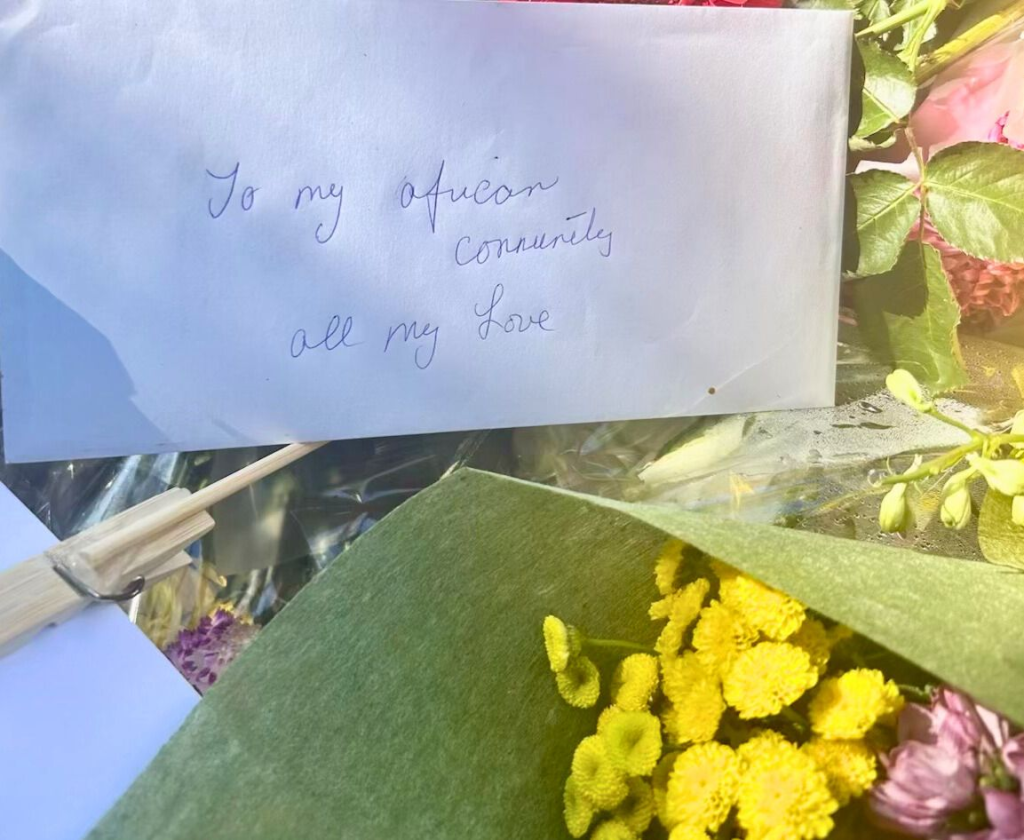 To my african
community
all my Love